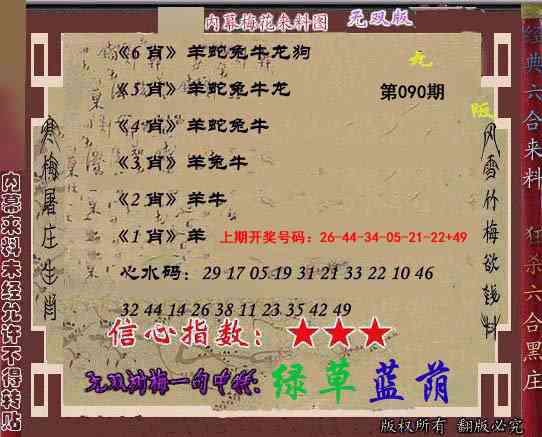 内幕梅花来料图 无双版
《6肖》羊蛇兔牛龙狗
《5肖》羊蛇兔牛龙
第090期
《4肖》羊蛇兔牛
《3肖》羊兔牛
《2肖》羊牛
《1肖》羊
上期开奖号码：26-44-34-05-21-22+49
心水码：29 17 05 19 31 21 33 22 10 46
32 44 14 26 38 11 23 35 42 49
信心指数：★★★
无双 梅一句中特：绿草蓝荫
寒梅屠庄生肖
风雪竹梅欲钱料
内幕来料未经允许不得转贴
经典六合来料
狂杀六合黑庄
版权所有 翻版必究